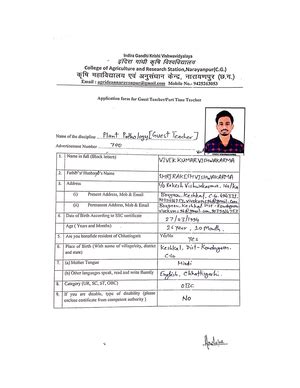 Indira Gandhi Krishi Vishwavidyalaya
इंदिरा गांधी कृषि विश्वविद्यालय
College of Agriculture and Research Station, Narayanpur(C.G.)
कृषि महाविद्यालय एवं अनुसंधान केन्द्र, नारायणपुर (छ.ग.)
Application form for Guest Teacher/Part Time Teacher
Name of the discipline Plant Pathology [Guest Teacher]
Advertisement Number 700
1. Name in full (Block letters) VIVEK KUMAR VISHWAKARMA
2. Father's/Husband's Name
3. Address
(i) Present Address, Mob & Email
(ii) Permanent Address, Mob & Email
4. Date of Birth According to SSC certificate 27/07/1994
Age ( Years and Months) 26 Year, 10 Month
5. Are you bonafide resident of Chhattisgarh Yes/No Yes
6. Place of Birth (With name of village/city, district and state) Keshkal, Dist- Kondagaon, C.G
7. (a) Mother Tongue Hindi
(b) Other languages speak, read and write fluently English, Chhattisgarhi
8. Category (UR, SC, ST, OBC) OBC
9. If you are disable, type of disability (please enclose certificate from competent authority ) No